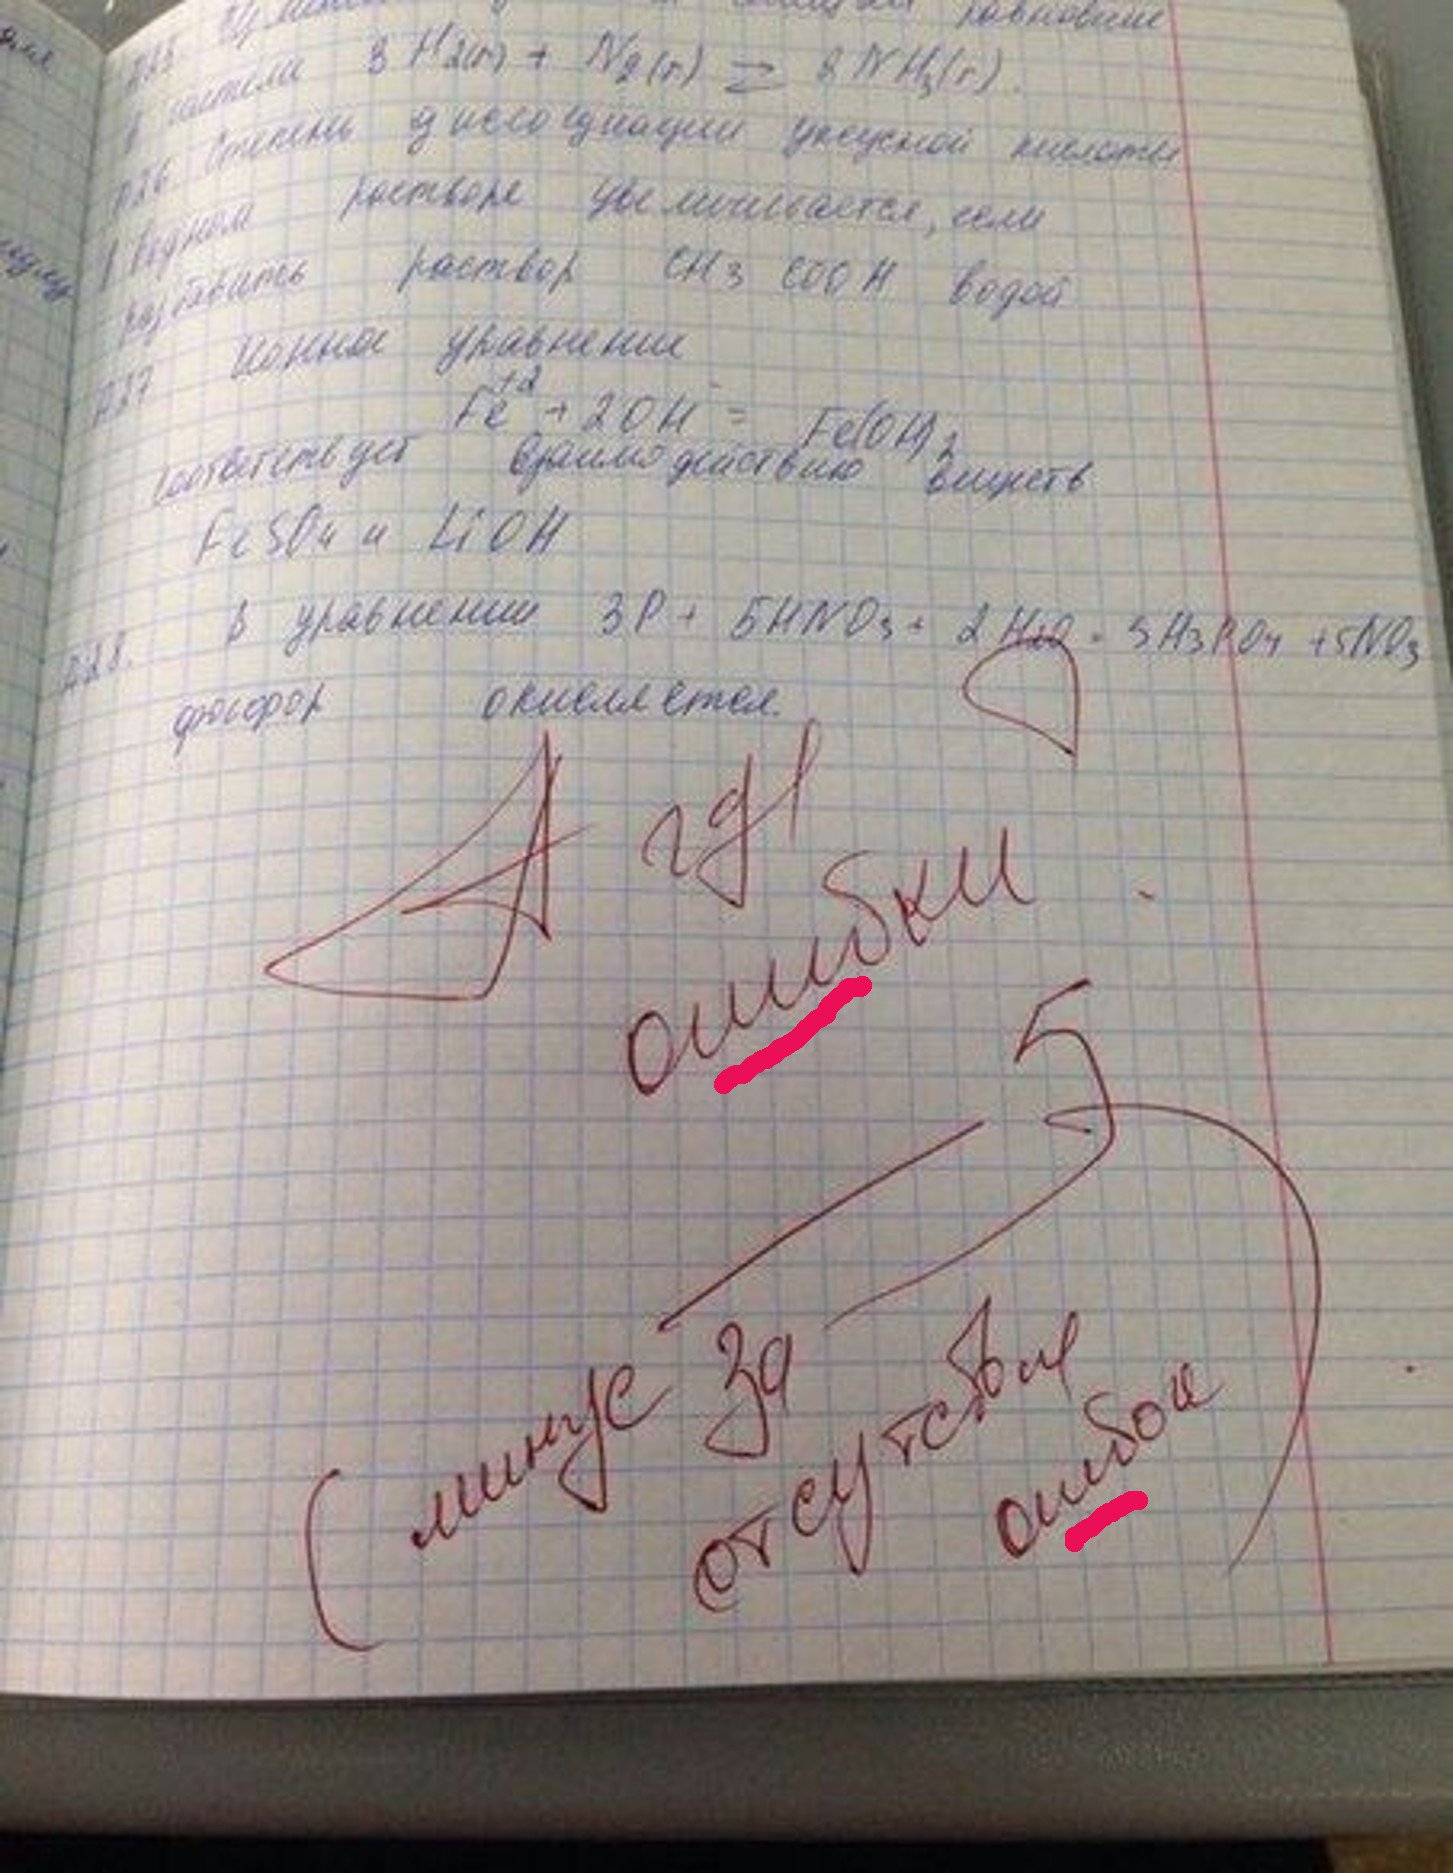 равновесие
в системе 3H₂(г) + N₂(г) ⇄ 2NH₃(г).
А26. Степень диссоциации уксусной кислоты
в водном растворе увеличивается, если
разбавить раствор CH3COOH водой
А27 Ионное уравнение
Fe⁺² + 2OH⁻ = Fe(OH)₂
соответствует взаимодействию веществ
FeSO₄ и LiOH
А28. В уравнении 3P + 5HNO₃ + 2H₂O = 3H₃PO₄ + 5NO₃
фосфор окисляется.
А где
ошибки ?
5-
(минус за
отсутствие
ошибок)